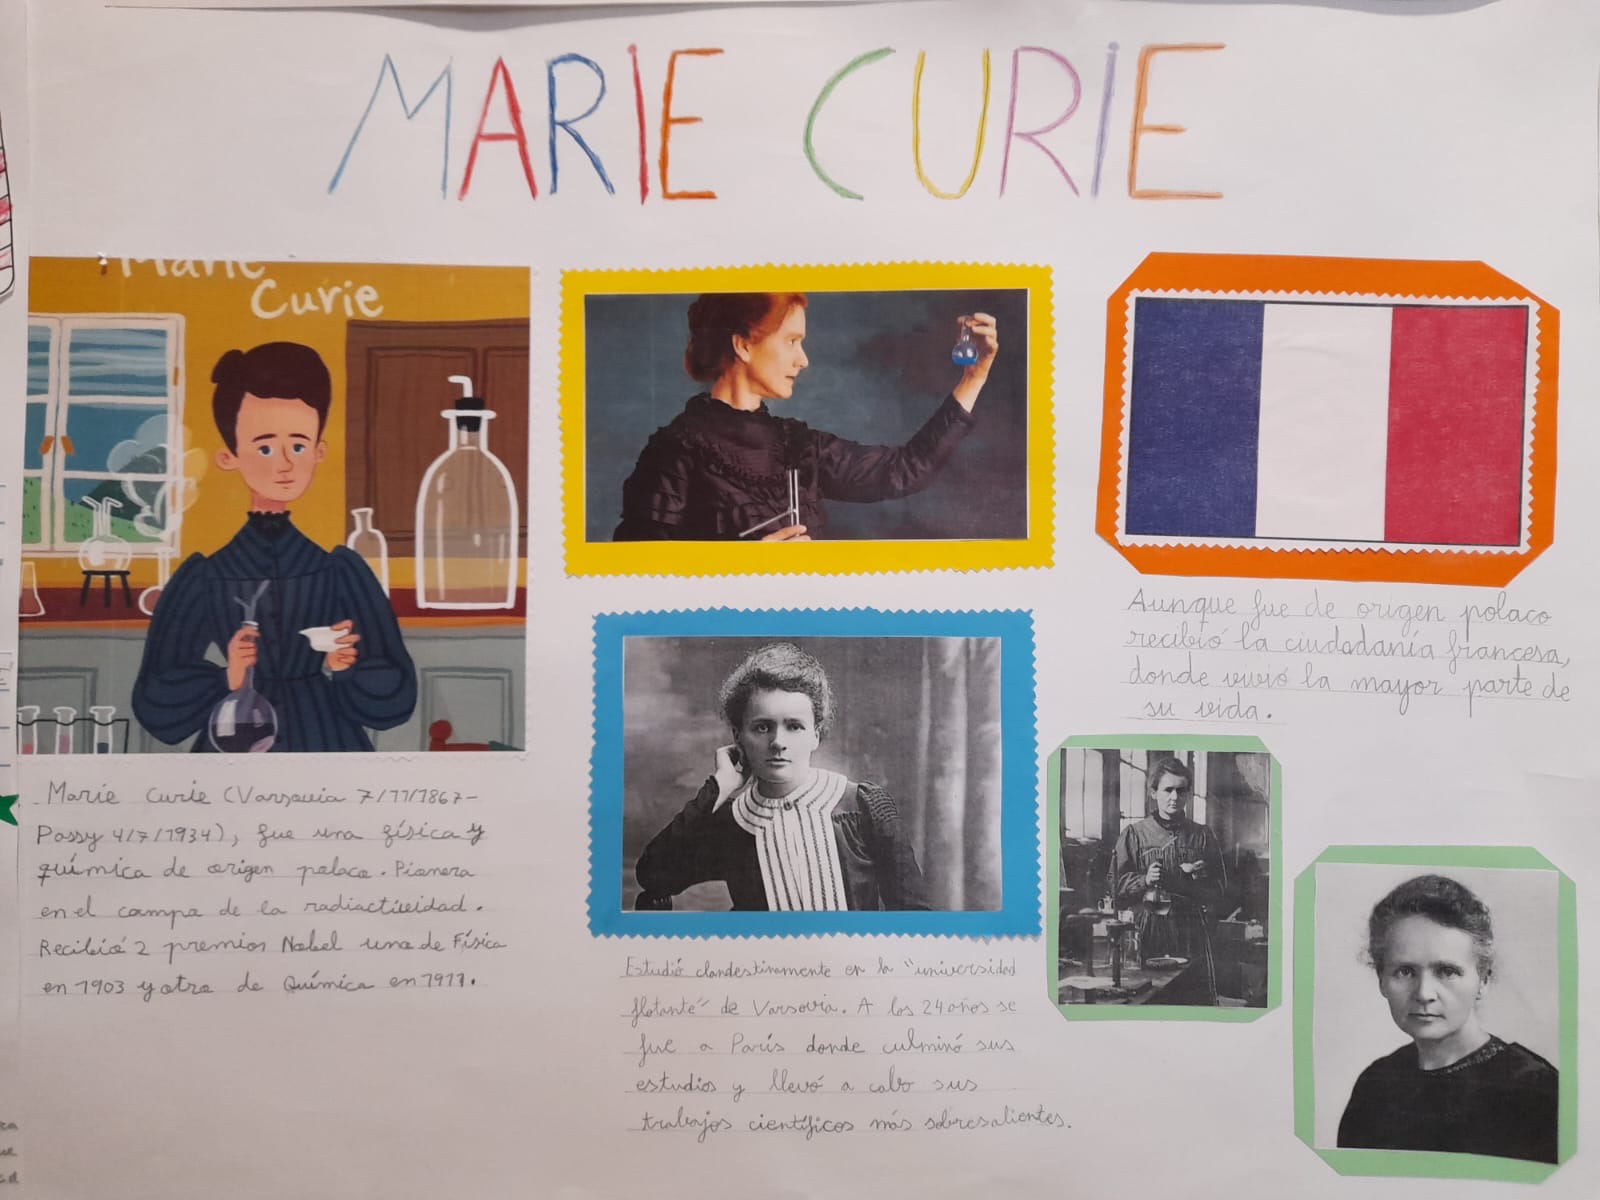 MARIE CURIE
Marie
Curie
Marie Curie (Varsovia 7/11/1867-
Passy 4/7/1934), fue una física y
química de origen polaco. Pionera
en el campo de la radiactividad.
Recibió 2 premios Nobel uno de Física
en 1903 y otro de Química en 1911.
Estudió clandestinamente en la "universidad
flotante" de Varsovia. A los 24 años se
fue a París donde culminó sus
estudios y llevó a cabo sus
trabajos científicos más sobresalientes.
Aunque fue de origen polaco
recibió la ciudadanía francesa,
donde vivió la mayor parte de
su vida.